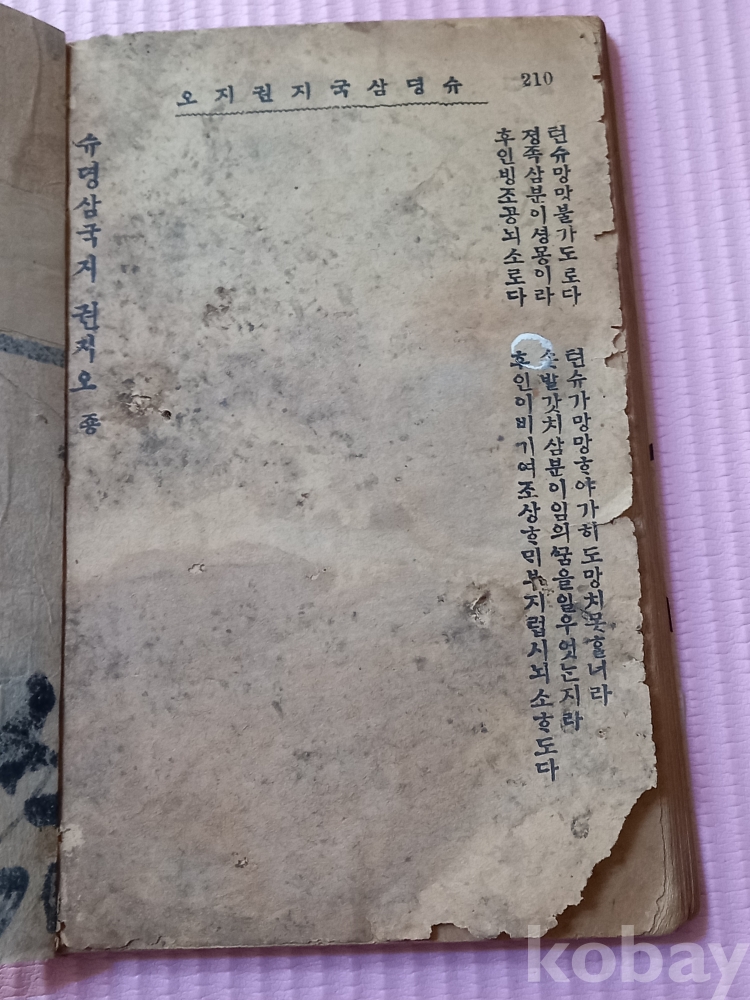 210
슈뎡삼국지권지오
텬슈망망불가도로다
졍족삼분이셩몽이라
후인빙조공뇌소로다
텬슈가망망ᄒᆞ야가히도망치못ᄒᆞᆯ너라
솟발갓치삼분이임의ᄭᅮᆷ을일우엇는지라
후인이비기여조상ᄒᆞᄆᆡ부지럽시뇌소ᄒᆞ도다
슈뎡삼국지 권지오 죵
kobay